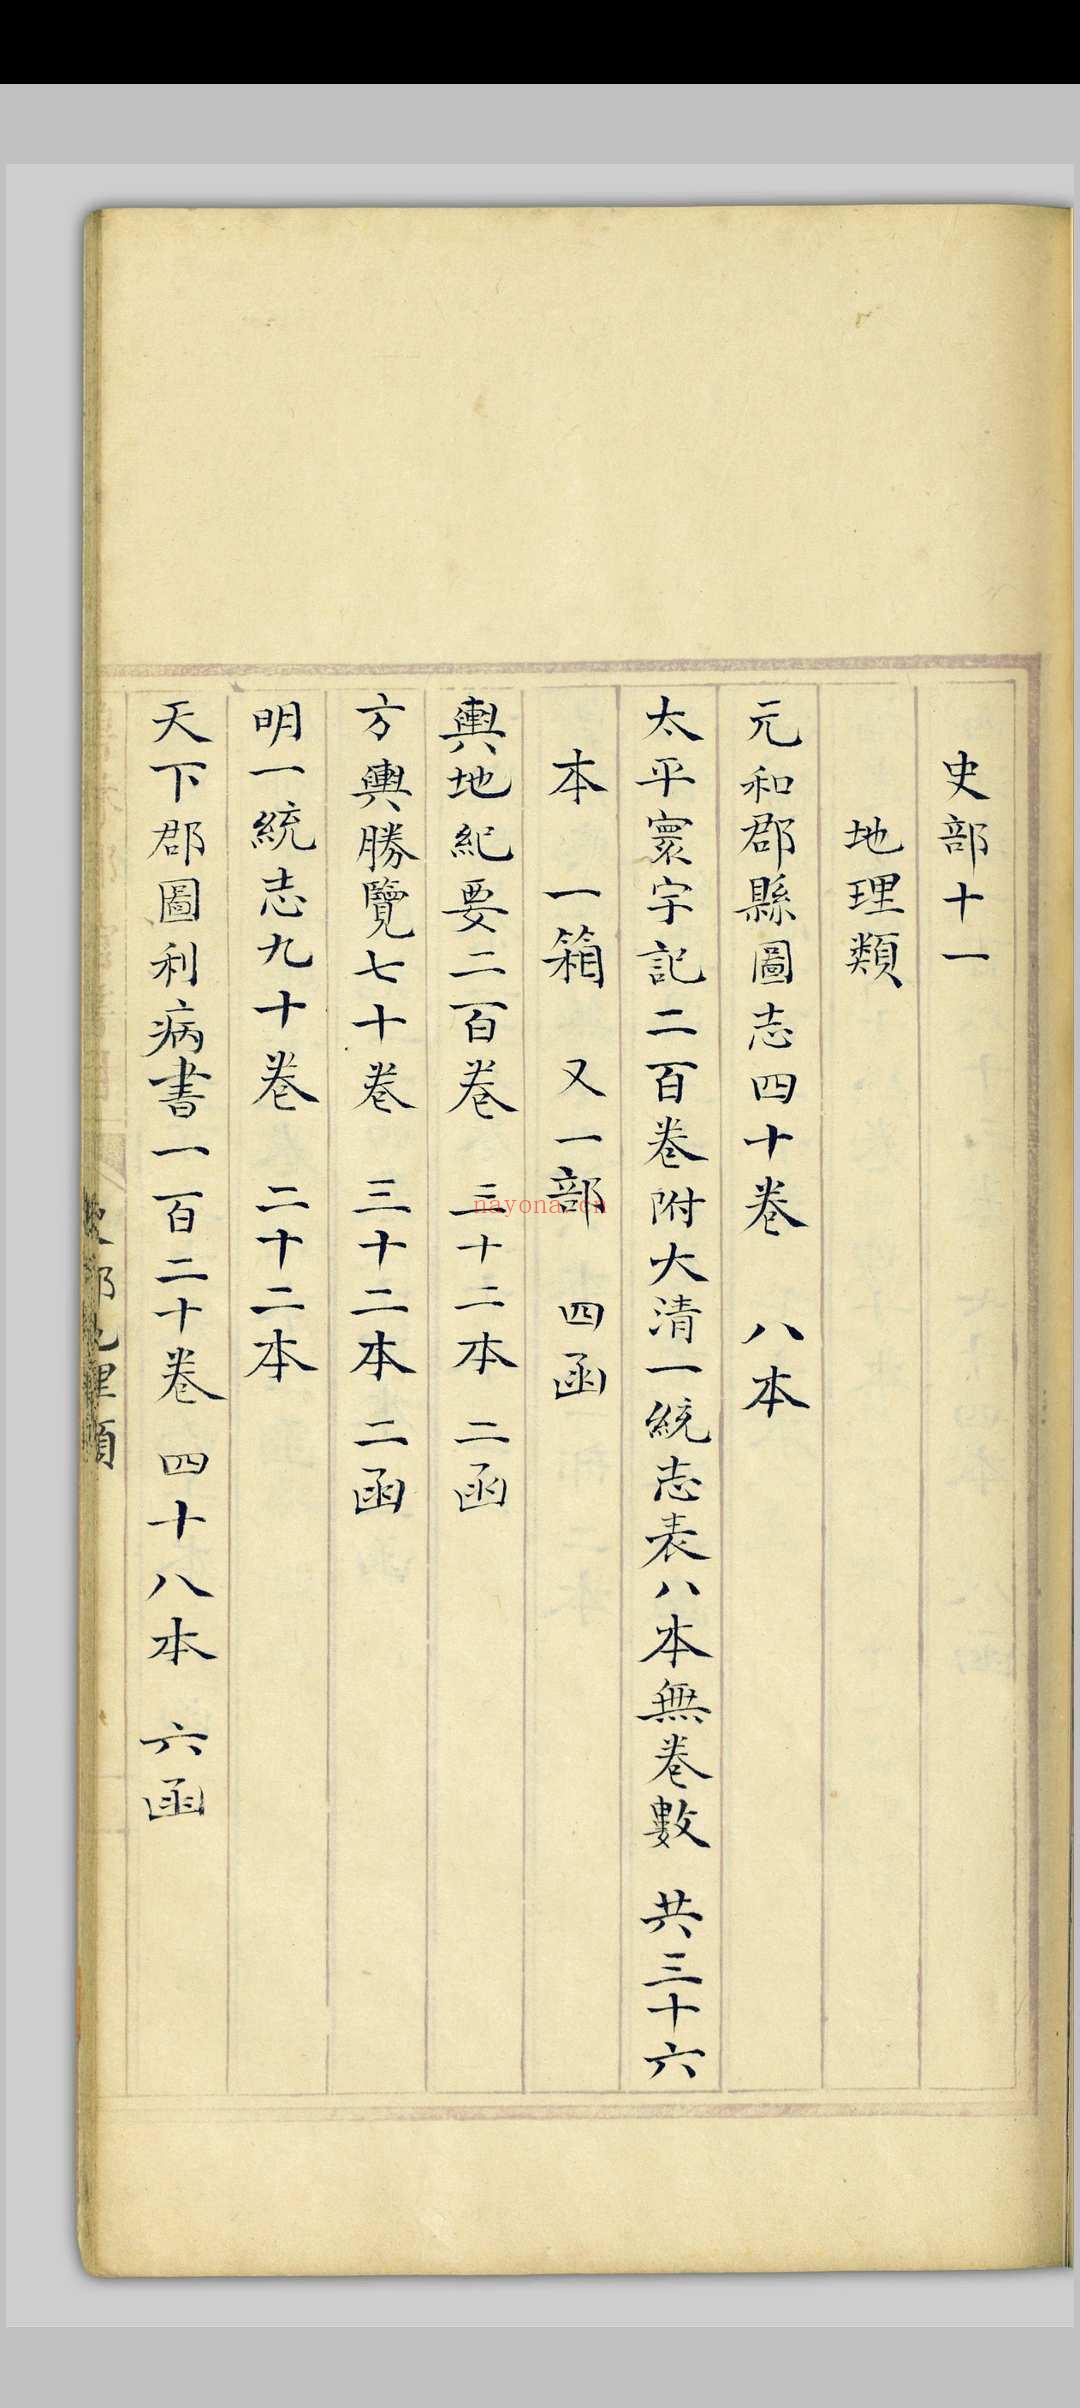 史部十一
地理類
元和郡縣圖志四十卷　八本
太平寰宇記二百卷附大清一統志表八本無卷數　共三十六
本　一箱　又一部　四函
輿地紀要二百卷　三十二本　二函
方輿勝覽七十卷　三十二本　二函
明一統志九十卷　二十二本
天下郡圖利病書一百二十卷　四十八本　六函
史部地理類
nayona.cn